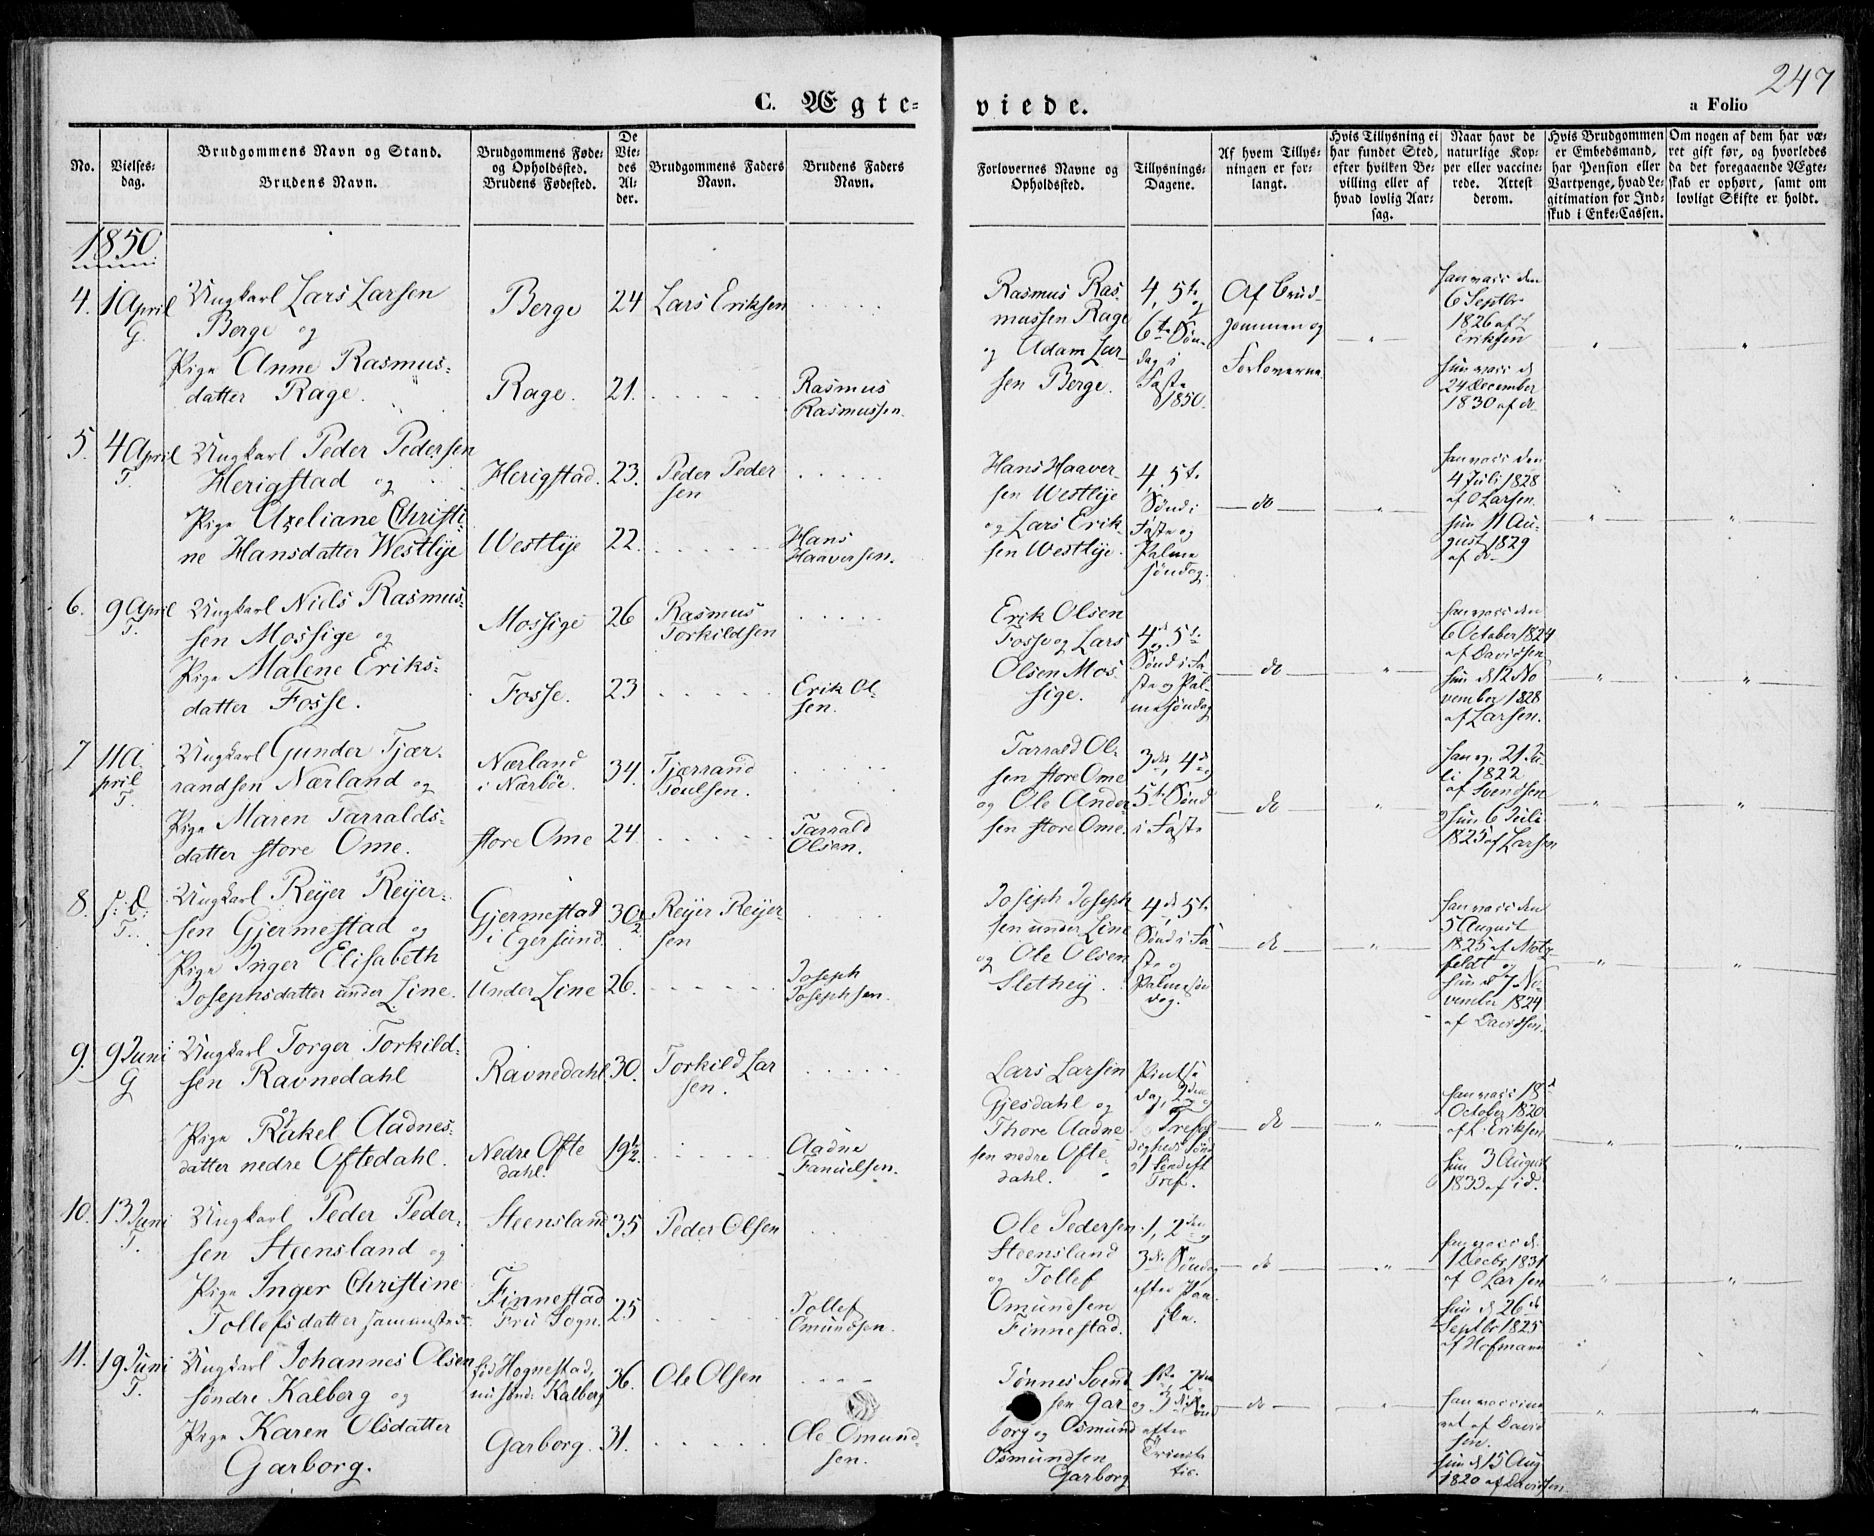 247
C. Ægte-
viede.
a Folio
No.
Vielses-
dag.
Brudgommens Navn og Stand.
Brudens Navn.
Brudgommens Føde-
og Opholdssted.
Brudens Fødested.
De
Vie-
des
Al-
der.
Brudgommens Faders
Navn.
Brudens Faders
Navn.
Forlovernes Navne og
Opholdssted.
Tillysnings-
Dagene.
Af hvem Tillys-
ningen er for-
langt.
Hvis Tillysning ei
har fundet Sted,
efter hvilken Be-
villing eller af
hvad lovlig Aar-
sag.
Naar havt de
naturlige Kop-
per eller vaccine-
rede. Attest
derom.
Hvis Brudgommen
er Embedsmand,
har Pension eller
Vartpenge, hvad Le-
gitimation for Ind-
skud i Enke-Cassen.
Om nogen af dem har væ-
ret gift før, og hvorledes
da det foregaaende Ægte-
skab er ophørt, samt om
lovligt Skifte er holdt.
1850
4. 1 April
G.
Ungkarl Lars Larsen
Berge og
Pige Anne Rasmus-
datter Rage.
Berge
Rage.
24
21.
Lars Eriksen
Rasmus
Rasmussen.
Rasmus Ras-
mussen Rage
og Adam Lar-
sen Berge.
4, 5te og
6te Søn-
dag i
Faste
1850.
Af Brud-
gommen og
Forloverne.
han vacc den
6 Septbr
1826 af L
Eriksen
hun vacc d
24 December
1830 af do
5. 4 April
T.
Ungkarl Peder Pedersen
Herigstad og
Pige Axeliane Christi-
ne Hansdatter Westlye
Herigstad.
Westlye
23.
22.
Peder Peder
sen
Hans
Haaversen.
Hans Haaver-
sen Westlye
og Lars Erik-
sen Westlye.
4, 5te
Sønd i
Faste og
Palme
søndag.
do
han vacc den
4 Juli 1828
af O Larsen.
hun 11 Au-
gust 1829
af do
6. 9 April
T.
Ungkarl Niels Rasmus-
sen Mossige og
Pige Malene Eriks-
datter Fosse.
Mossige
Fosse.
26
23
Rasmus
Torkildsen
Erik Ol-
sen.
Erik Olsen
Fosse og Lars
Olsen Mos-
sige.
4de, 5te
Sønd i Fa-
ste og Pal-
mesøndag
do
han vacc den
6 October 1824
af Davidsen
hun d 12 No
vember 1828
af Larsen.
7 11 A-
pril
T.
Ungkarl Gunder Tjær-
randsen Nærland og
Pige Maren Tarralds-
datter store Ome.
Nærland
i Nærbøe.
store Ome
34.
24
Tjærrand
Poulsen.
Tarrald
Olsen.
Tarrald Ol-
sen store Ome
og Ole Ander-
sen store Ome.
3die, 4de og
5te Sønd
i Faste
do
han v. 21 Ju-
li 1822
af Svendsen
hun 6 Juli
1825 af Larsen
8. s: D:
T.
Ungkarl Reyer Reyer-
sen Gjermestad og
Pige Inger Elisabeth
Josephsdatter under Line.
Gjermestad
i Egersund
Under Line
30½
26.
Reyer Reyer
sen
Joseph
Josephsen.
Joseph Joseph
sen under Line
og Ole Olsen
Slethey.
4de, 5te
Sønd i Fa-
ste og
Palmesøn
dag.
do
han vacc den
5 August
1825 af Motz-
feldt og
hun d 7 No-
vember 1824
af Davidsen
9. 9 Juni
G
Ungkarl Torger Torkild-
sen Ravnedahl
og
Pige Rakel Aadnes-
datter nedre Oftedahl.
Ravnedahl
Nedre Ofte
dahl.
30.
19½
Torkild Lar
sen.
Aadne
Fanuelsen.
Lars Larsen
Gjesdahl og
Thore Aadne
sen nedre Ofte-
dahl.
Pintse
dag, 2den og
Trefol
digheds Sønd
og 1 Sønd eft
Tref.
do
han vacc 18d
October 1820
af L. Eriksen
hun 3 August
1833 af id.
10. 13 Juni
T.
Ungkarl Peder Peder-
sen Steensland og
Pige Inger Christine
Tollefsdatter sammested.
Steensland
Finnestad
Fru Sogn.
35
25
Peder Olsen
Tollef
Omundsen.
Ole Pedersen
Steensland
og Tollef
Omundsen
Finnestad.
1, 2den og
3die Søndag
efter Paa-
ske.
do
han vacc d.
1 Decbr 1831
af O Larsen
hun d 26de
Septbr 1825
af Hofmann
11. 19 Juni
T.
Ungkarl Johannes Olsen
søndre Kalberg og
Pige Karen Olsdatter
Garborg.
fød Hognestad,
nu sønd: Kalberg
Garborg.
36.
31.
Ole Olsen
Ole Omund-
sen.
Tønnes Svend
sen Gar
borg og Osmund
Osmundsen
Garborg
1ste, 2den
og 3die Sønd
efter
Trinita
tis.
do
han vaccine
ret af David
sen.
hun d 15 Aug
1820 af Davidsen.